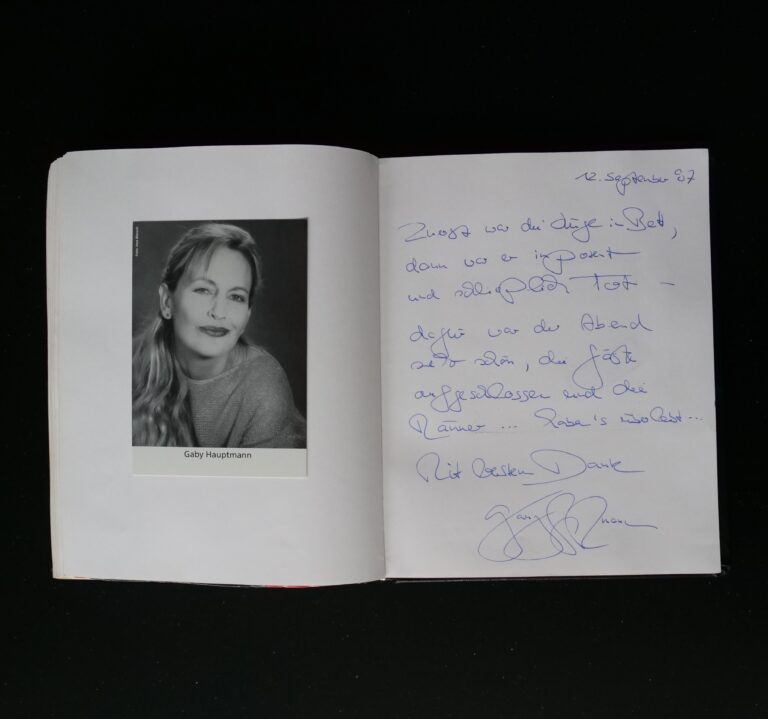 Gaby Hauptmann
12. September 97
Zuerst war die Lüge im Bett,
dann war er impotent
und schließlich Tot –
dafür war der Abend
sehr schön, die Gäste
aufgeschlossen und die
Männer ... haben's überlebt...
Mit bestem Dank